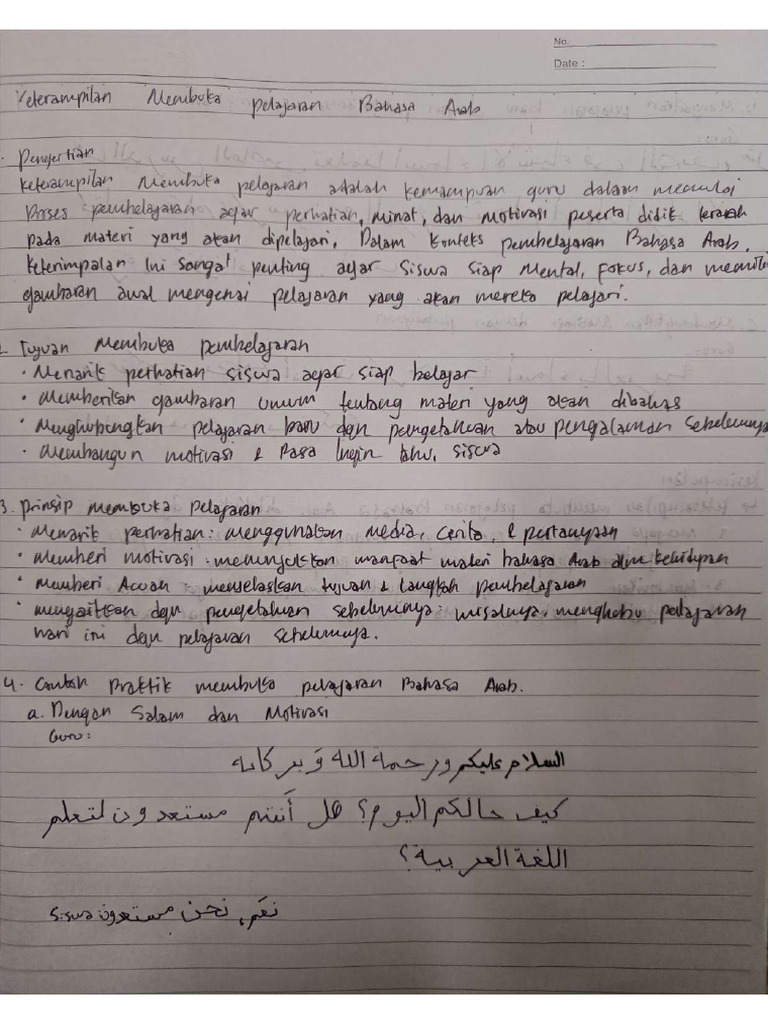 No.
Date :
Keterampilan Membuka pelajaran Bahasa Arab
. Pengertian
Keterampilan Membuka pelajaran adalah kemampuan guru dalam memulai
Proses pembelajaran agar perhatian, minat, dan motivasi peserta didik terarah
pada materi yang akan dipelajari. Dalam konteks pembelajaran Bahasa Arab,
keterimpalan Ini Sangat penting agar siswa siap Mental, fokus, dan memilik
gambaran awal mengenai pelajaran yang akan mereka pelajari.
2. Tujuan Membuka pembelajaran
• Menarik perhatian siswa agar siap belajar
• Memberikan gambaran umum tentang materi yang akan dibahas
• Menghubungkan pelajaran baru dgn pengetahuan atau pengalaman sebelumnya
• Membangun motivasi & Rasa Ingin tahu, siswa
3. prinsip membuka pelajaran
• Menarik perhatian : menggunakan media, cerita, & pertanyaan
• Memberi motivasi : menunjukkan manfaat materi bahasa Arab dlm kehidupan
• memberi Acuan : menjelaskan tujuan & langkah pembelajaran
• mengaitkan dgn pengetahuan sebelumnya : misalnya, menghubu pelajaran
hari ini dgn pelajaran sebelumnya.
4. Contoh Praktik membuka pelajaran Bahasa Arab.
a. Dengan Salam dan Motivasi
Guru :
السلام عليكم ورحمة الله وَبركاته
كيف حالكم اليوم؟ هل أَنتم مستعدون لتعلم
اللغة العربية؟
Siswa نعَم, نحن مستعدون